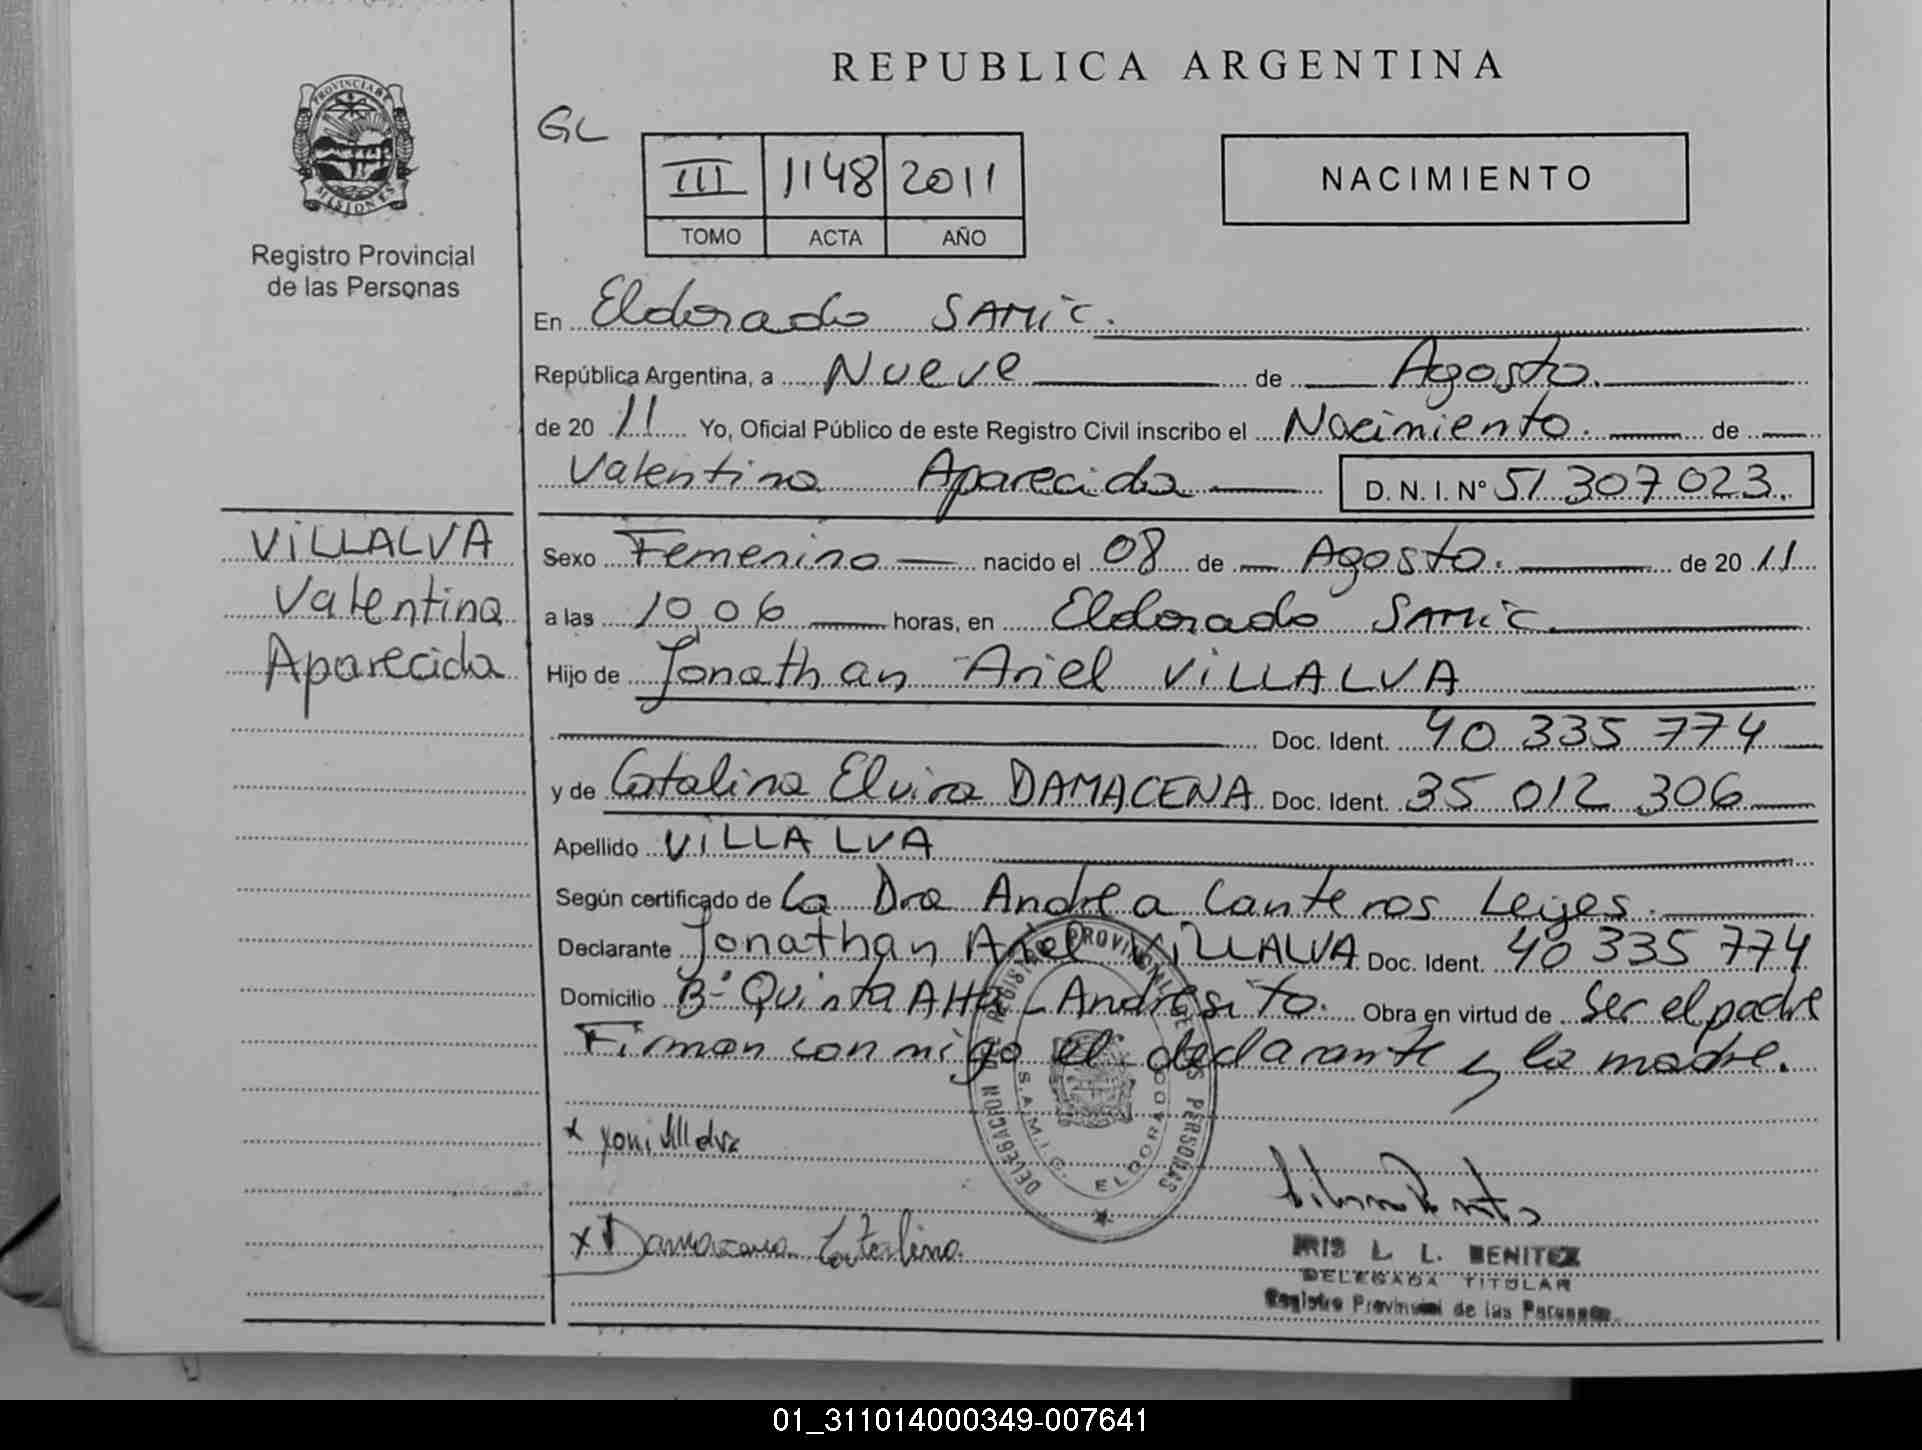 REPUBLICA ARGENTINA
PROVINCIA DE
MISIONES
Registro Provincial
de las Personas
GL
III 1148 2011
TOMO ACTA AÑO
NACIMIENTO
En Eldorado SAMIC.
República Argentina, a Nueve de Agosto.
de 20 11 Yo, Oficial Público de este Registro Civil inscribo el Nacimiento. de
Valentina Aparecida D. N. I. Nº 51 307 023.
VILLALVA
Valentina
Aparecida
Sexo Femenino nacido el 08 de Agosto. de 20 11
a las 10,06 horas, en Eldorado SAMIC.
Hijo de Jonathan Ariel VILLALVA
Doc. Ident. 40 335 774
y de Catalina Elvira DAMACENA Doc. Ident. 35 012 306
Apellido VILLALVA
Según certificado de La Dra Andrea Canteros Leyes.
Declarante Jonathan Ariel VILLALVA Doc. Ident. 40 335 774
Domicilio Bº Quinta Alta - Andresito. Obra en virtud de Ser el padre
Firman conmigo el declarante y la madre.
DELEGACION DEL REGISTRO PROVINCIAL DE LAS PERSONAS
S.A.M.I.C. ELDORADO
x yoni Villalva
x Damacena Catalina
IRIS L. L. BENITEZ
DELEGADA TITULAR
Registro Provincial de las Personas
01_311014000349-007641